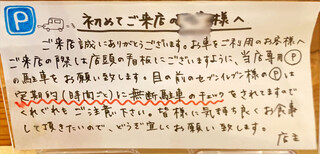 P
初めてご来店の 様へ
ご来店誠にありがとうございます。お車をご利用のお客様へ
ご来店の際しは店頭の看板にございますように、当店専用Ⓟ
の駐車をお願い致します。目の前のセブンイレブン様のⓅは
定期的(時間ごと)に無断駐車のチェックをされてますので
くれぐれもご注意下さい。皆様に気持ち良くお食事
して頂きたいので、どうぞ宜しくお願い致します。
店主